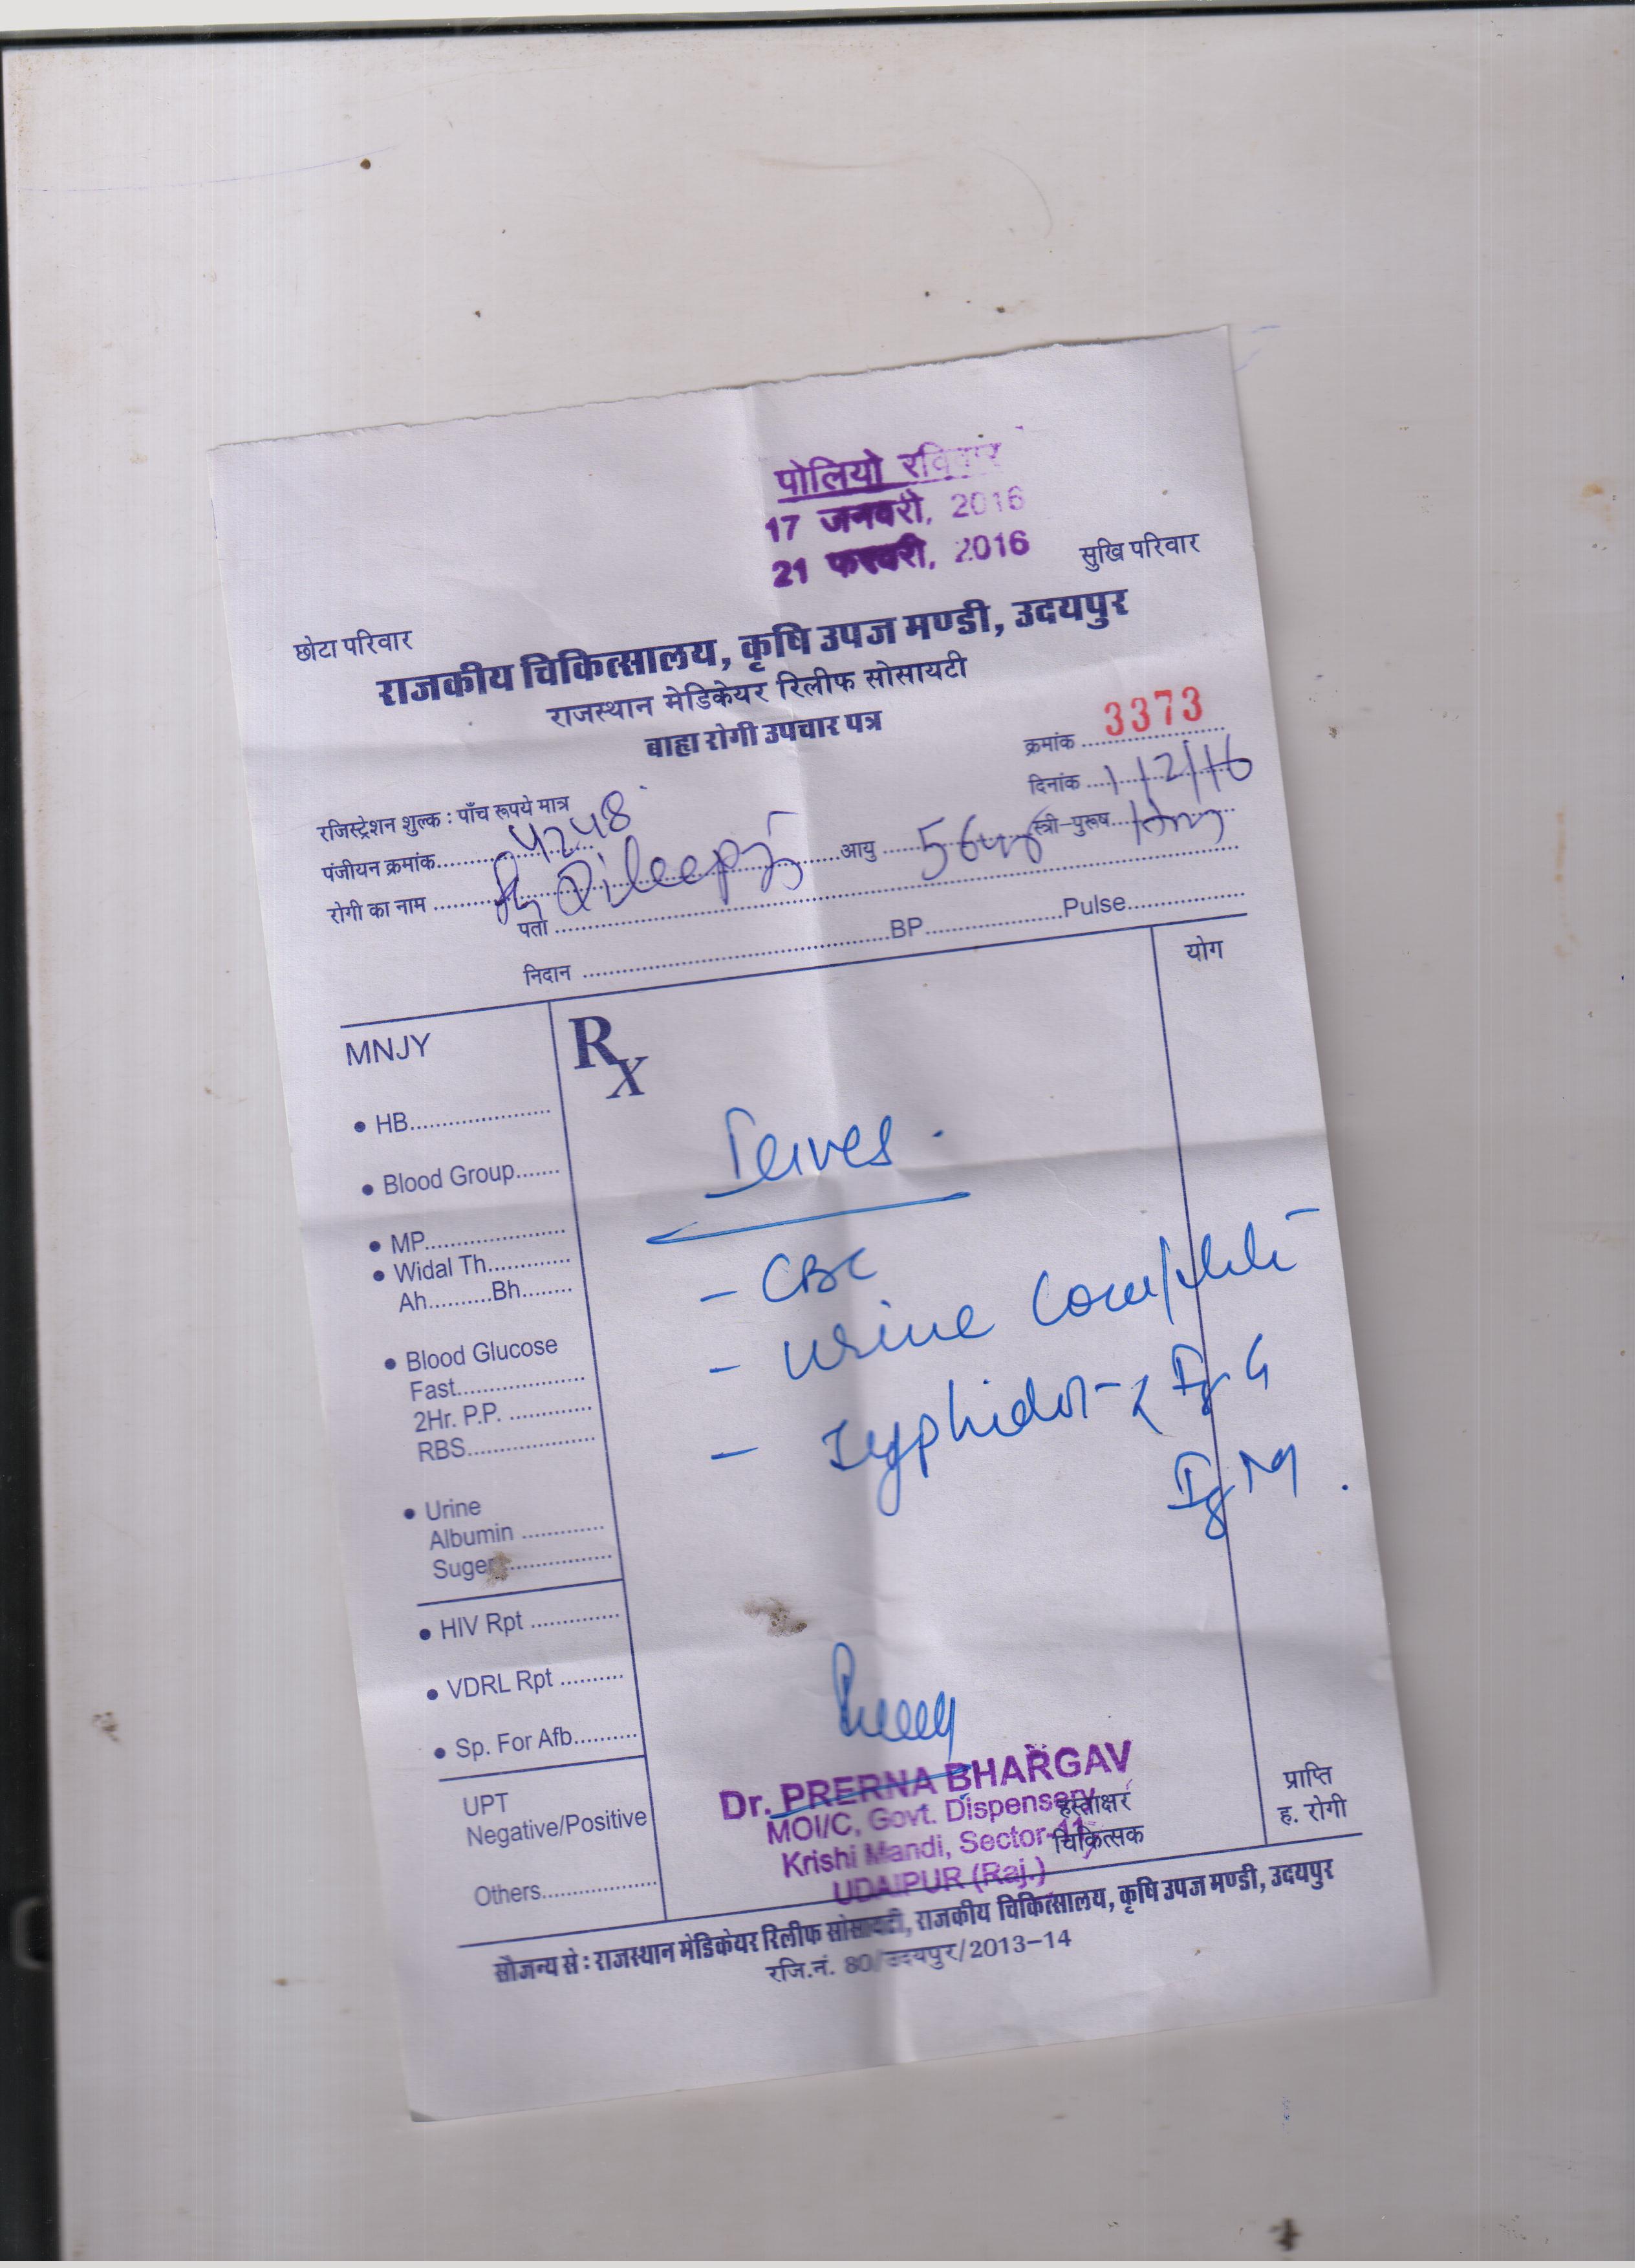 पोलियो रविवार
17 जनवरी, 2016
21 फरवरी, 2016
छोटा परिवार
सुखि परिवार
राजकीय चिकित्सालय, कृषि उपज मण्डी, उदयपुर
राजस्थान मेडिकेयर रिलीफ सोसायटी
बाह्य रोगी उपचार पत्र
क्रमांक 3373
रजिस्ट्रेशन शुल्क : पाँच रूपये मात्र
दिनांक 1/2/16
पंजीयन क्रमांक 4248
रोगी का नाम Dileep आयु 56 स्त्री-पुरूष
पता
निदान BP Pulse
MNJY
Rx
योग
• HB
• Blood Group
• MP
• Widal Th
Ah Bh
• Blood Glucose
Fast
2Hr. P.P.
RBS
• Urine
Albumin
Suger
• HIV Rpt
• VDRL Rpt
• Sp. For Afb
UPT
Negative/Positive
Others
- CBC
- urine complete
- Typhidot - IgG
IgM.
Dr. PRERNA BHARGAV
MOI/C, Govt. Dispensary
Krishi Mandi, Sector-11,
UDAIPUR (Raj.)
हस्ताक्षर
चिकित्सक
प्राप्ति
ह. रोगी
सौजन्य से : राजस्थान मेडिकेयर रिलीफ सोसायटी, राजकीय चिकित्सालय, कृषि उपज मण्डी, उदयपुर
रजि.नं. 80/उदयपुर/2013-14